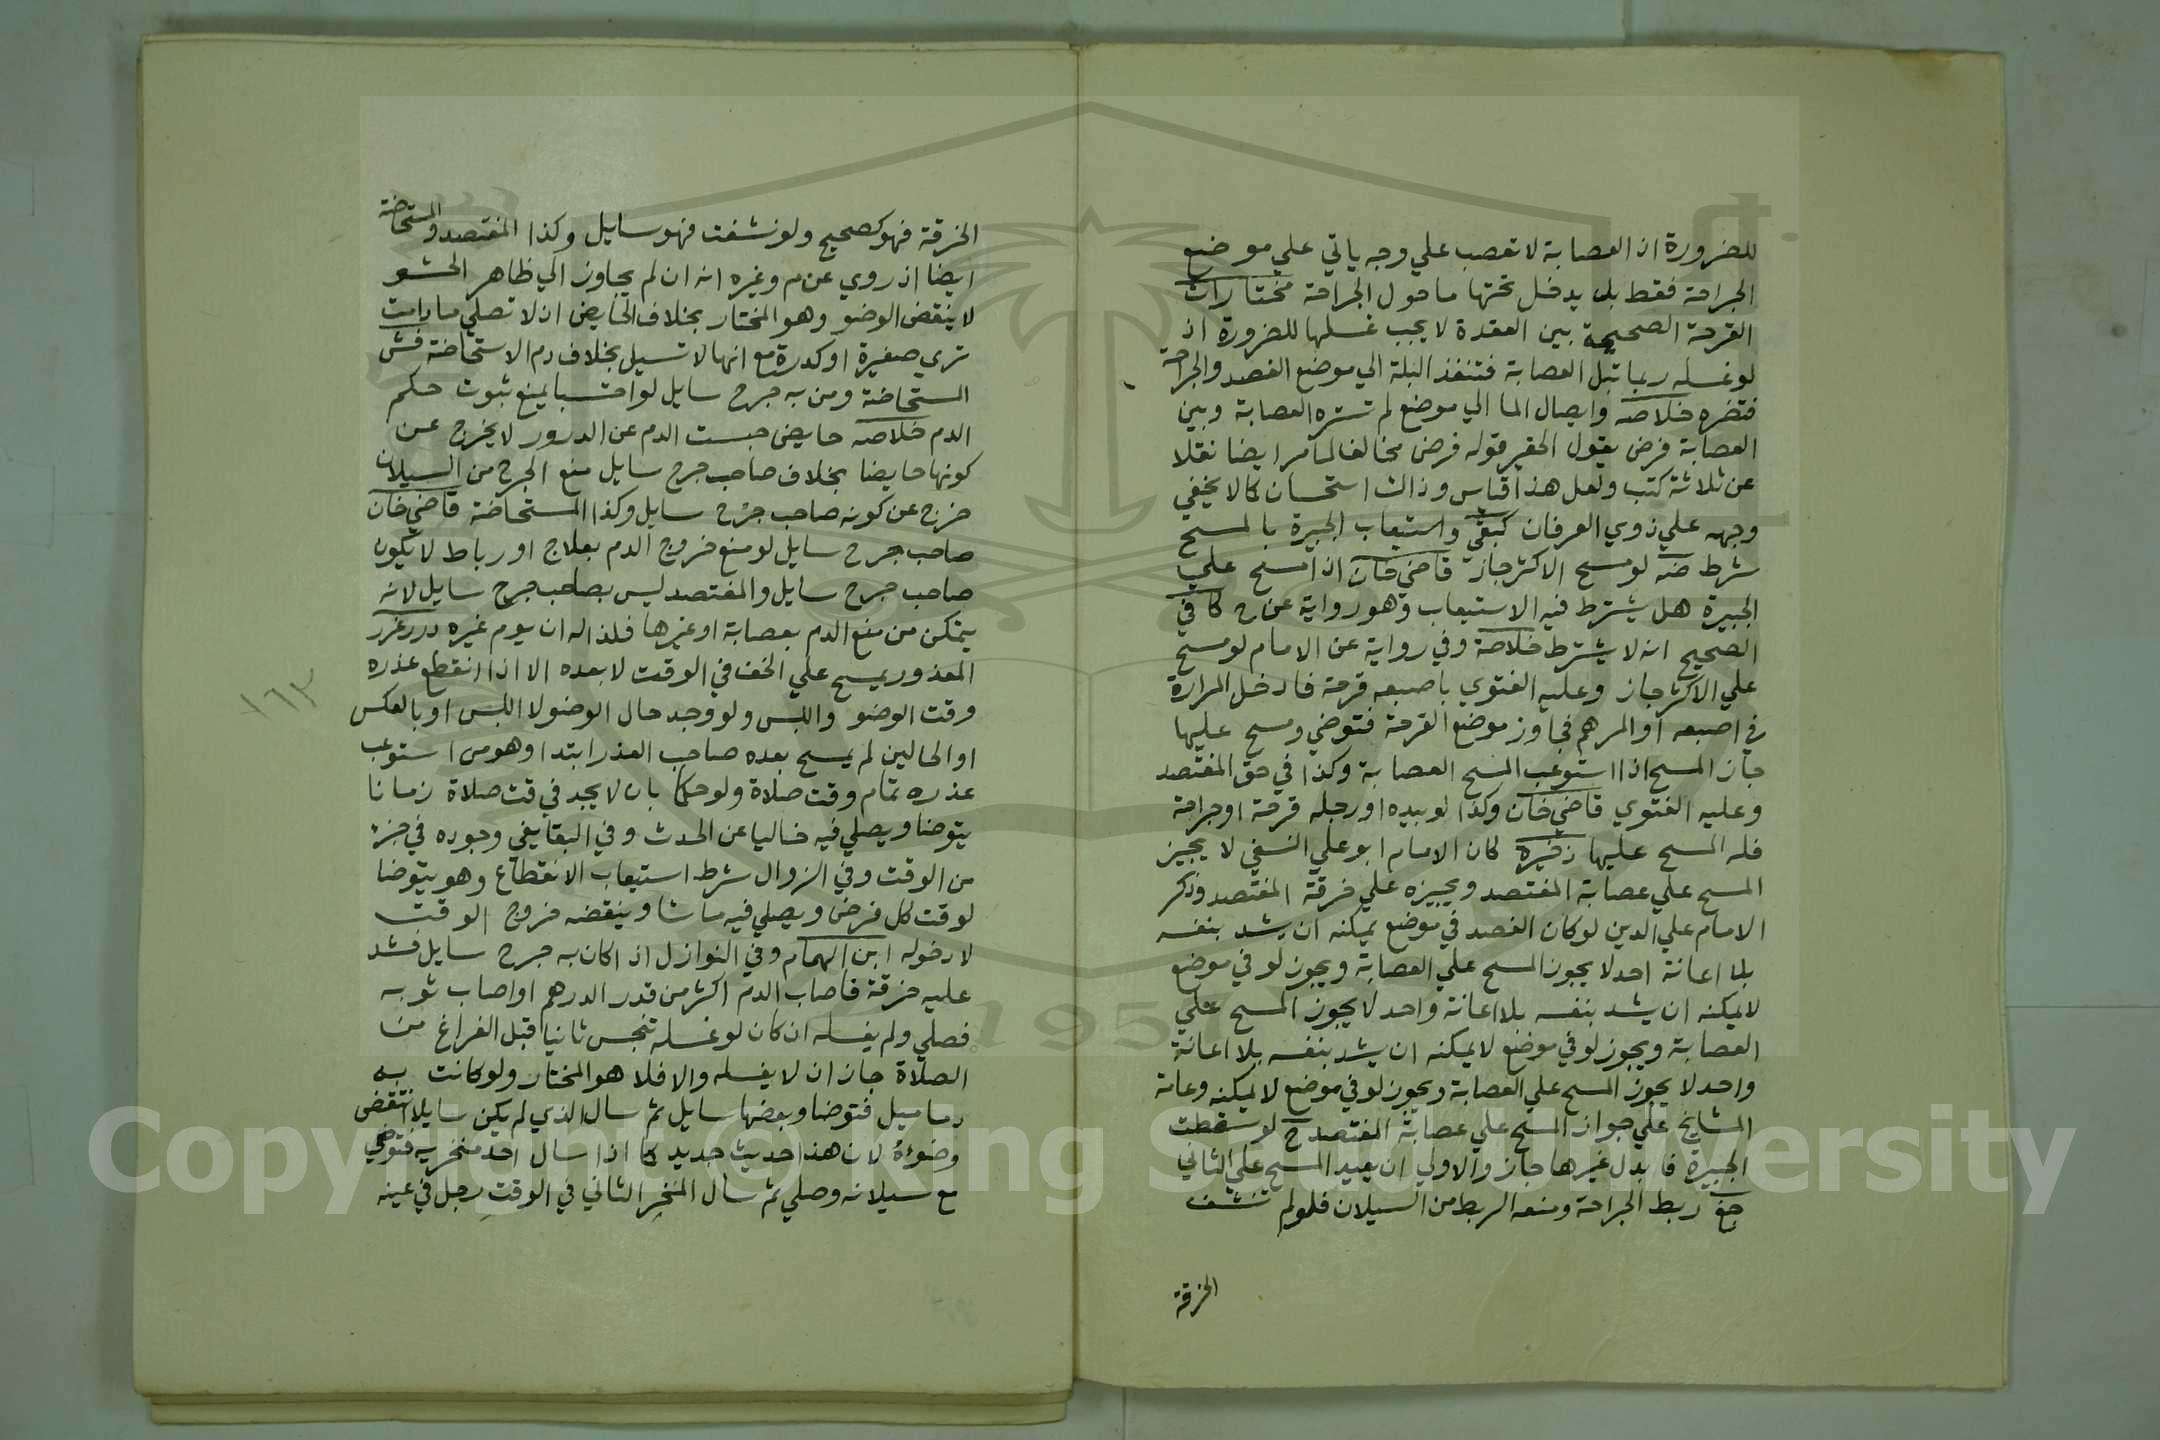 للضرورة اذ العصابة لا تعصب علي وجه ياتي علي موضع
الجراحة فقط بل يدخل تحتها ما حول الجراحة مختارات
القرحة الصحيحة بين العقدة لا يجب غسلها للضرورة اذ
لو غسله ربما تبل العصابة فتنفذ البلة الي موضع الفصد والجراحة
فتضره خلاصه وايصال الما الي موضع لم تستره العصابة وبين
العصابة فرض يقول الحقير قوله فرض مخالف لما مر ايضا نقلا
عن ثلاثة كتب ولعل هذا قياس وذاك استحسان كما لا يخفي
وجهه علي ذوي العرفان كبقي واستيعاب الجبيرة بالمسح
شرط ضه لو مسح الاكثر جاز قاضي خان اذا مسح علي
الجبيرة هل يشترط فيه الاستيعاب وهو رواية عن ح كافي
الصحيح انه لا يشترط خلاصة وفي رواية عن الامام لو مسح
علي الاكثر جاز وعليه الفتوي باصبعه قرحة فادخل المرارة
في اصبعه او المرهم فجاوز موضع القرحة فتوضي ومسح عليها
جاز المسح اذا استوعب المسح العصابة وكذا في حق المفتصد
وعليه الفتوي قاضي خان وكذا لو بيده او رجله قرحة او جراحة
فله المسح عليها ذخيرة كان الامام ابو علي النسفي لا يجيز
المسح علي عصابة المفتصد ويجيزه علي خرقة المفتصد وذكر
الامام علي الدين لو كان الفصد في موضع يمكنه ان يشد بنفسه
بلا اعانة احد لا يجوز المسح علي العصابة ويجوز لو في موضع
لا يمكنه ان يشد بنفسه بلا اعانة واحد لا يجوز المسح علي
العصابة ويجوز لو في موضع لا يمكنه ان يشد بنفسه بلا اعانة
واحد لا يجوز المسح علي العصابة ويجوز لو في موضع لا يمكنه وعامة
المشايخ علي جواز المسح علي عصابة المفتصد ح لو سقطت
الجبيرة فابدل غيرها جاز والاولي ان يعيد المسح علي الثاني
جغ ربط الجراحة ومنعه الربط من السيلان فلو لم تنشف
الخرقة
الخرقة فهو كصحيح ولو نشفت فهو سايل وكذا المفتصد والمستحاضة
ايضا اذ روي عن م وغيره انه ان لم يجاوز الي ظاهر الحشو
لا ينقض الوضو وهو المختار بخلاف الحايض اذ لا تصلي ما دامت
تري صفرة او كدرة مع انها لا تسيل بخلاف دم الاستحاضة فش
المستحاضة ومن به جرح سايل لو احتشيا يمنع ثبوت حكم
الدم خلاصه حايض حبست الدم عن الدرور لا يخرج عن
كونها حايضا بخلاف صاحب جرح سايل منع الجرح من السيلان
خرج عن كونه صاحب جرح سايل وكذا المستحاضة قاضي خان
صاحب جرح سايل لو منع خروج الدم بعلاج او رباط لا يكون
صاحب جرح سايل والمفتصد ليس بصاحب جرح سايل لانه
يتمكن من منع الدم بعصابة او غيرها فلذا له ان يوم غيره درر غرر
المعذور يمسح علي الخف في الوقت لا بعده الا اذا انقطع عذره
وقت الوضو واللبس ولو وجد حال الوضو لا اللبس او بالعكس
او الحالين لم يمسح بعده صاحب العذر ابتدا وهو من استوعب
عذره تمام وقت صلاة ولو حكما بان لا يجد في قت صلاة زمانا
يتوضا ويصلي فيه خاليا عن الحدث وفي البقا يفي وجوده في جزء
من الوقت وفي الزوال شرط استيعاب الانقطاع وهو يتوضا
لوقت كل فرض ويصلي فيه ما شا وينقضه خروج الوقت
لا دخوله ابن الهمام وفي النوازل اذا كان به جرح سايل فشد
عليه خرقة فاصاب الدم اكثر من قدر الدرهم او اصاب ثوبه
فصلي ولم يغسله ان كان لو غسله تنجس ثانيا قبل الفراغ من
الصلاة جاز ان لا يغسله والا فلا هو المختار ولو كانت به
دماميل فتوضا وبعضها سايل ثم سال الذي لم يكن سايلا انتقض
وضوءه لان هذا حديث جديد كما اذا سال احد منخريه فتوضي
مع سيلانه وصلي ثم سال المنخر الثاني في الوقت رجل في عينه
١٦٣
1957
Copyright © King Saud University